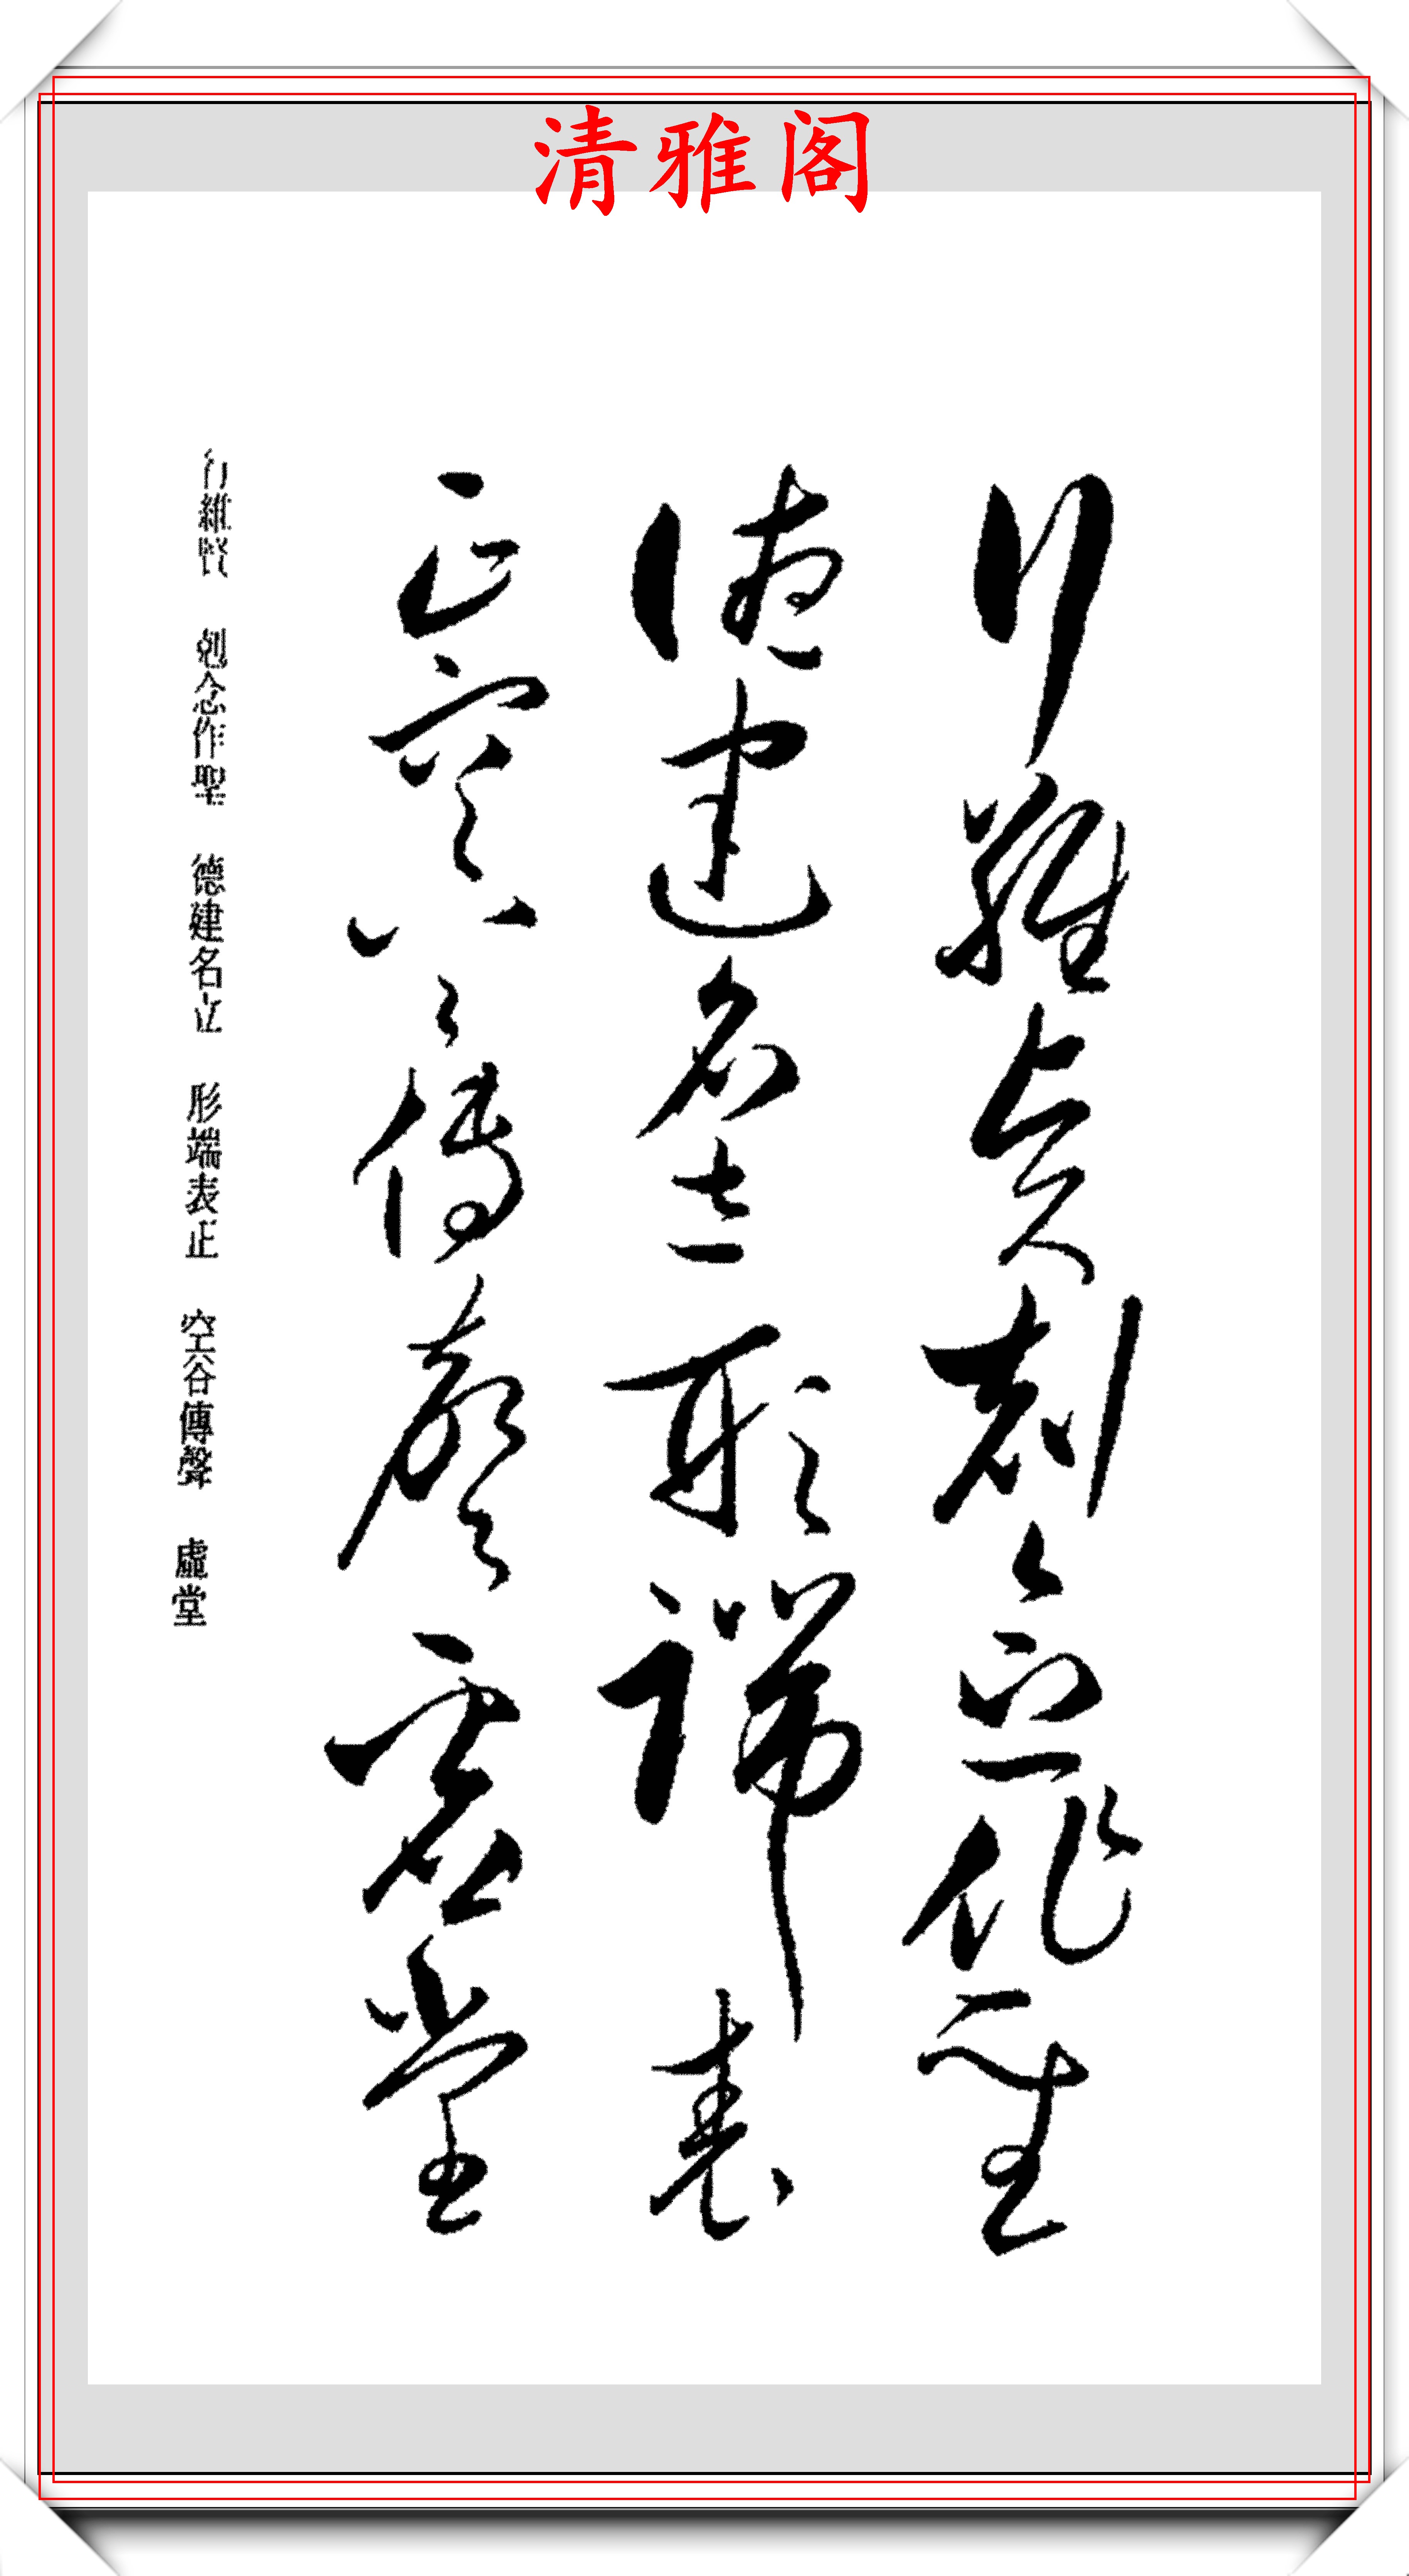 清雅阁
行維賢剋念作聖
德建名立形端表
正空谷傳聲虛堂
行維賢 剋念作聖 德建名立 形端表正 空谷傳聲 虛堂